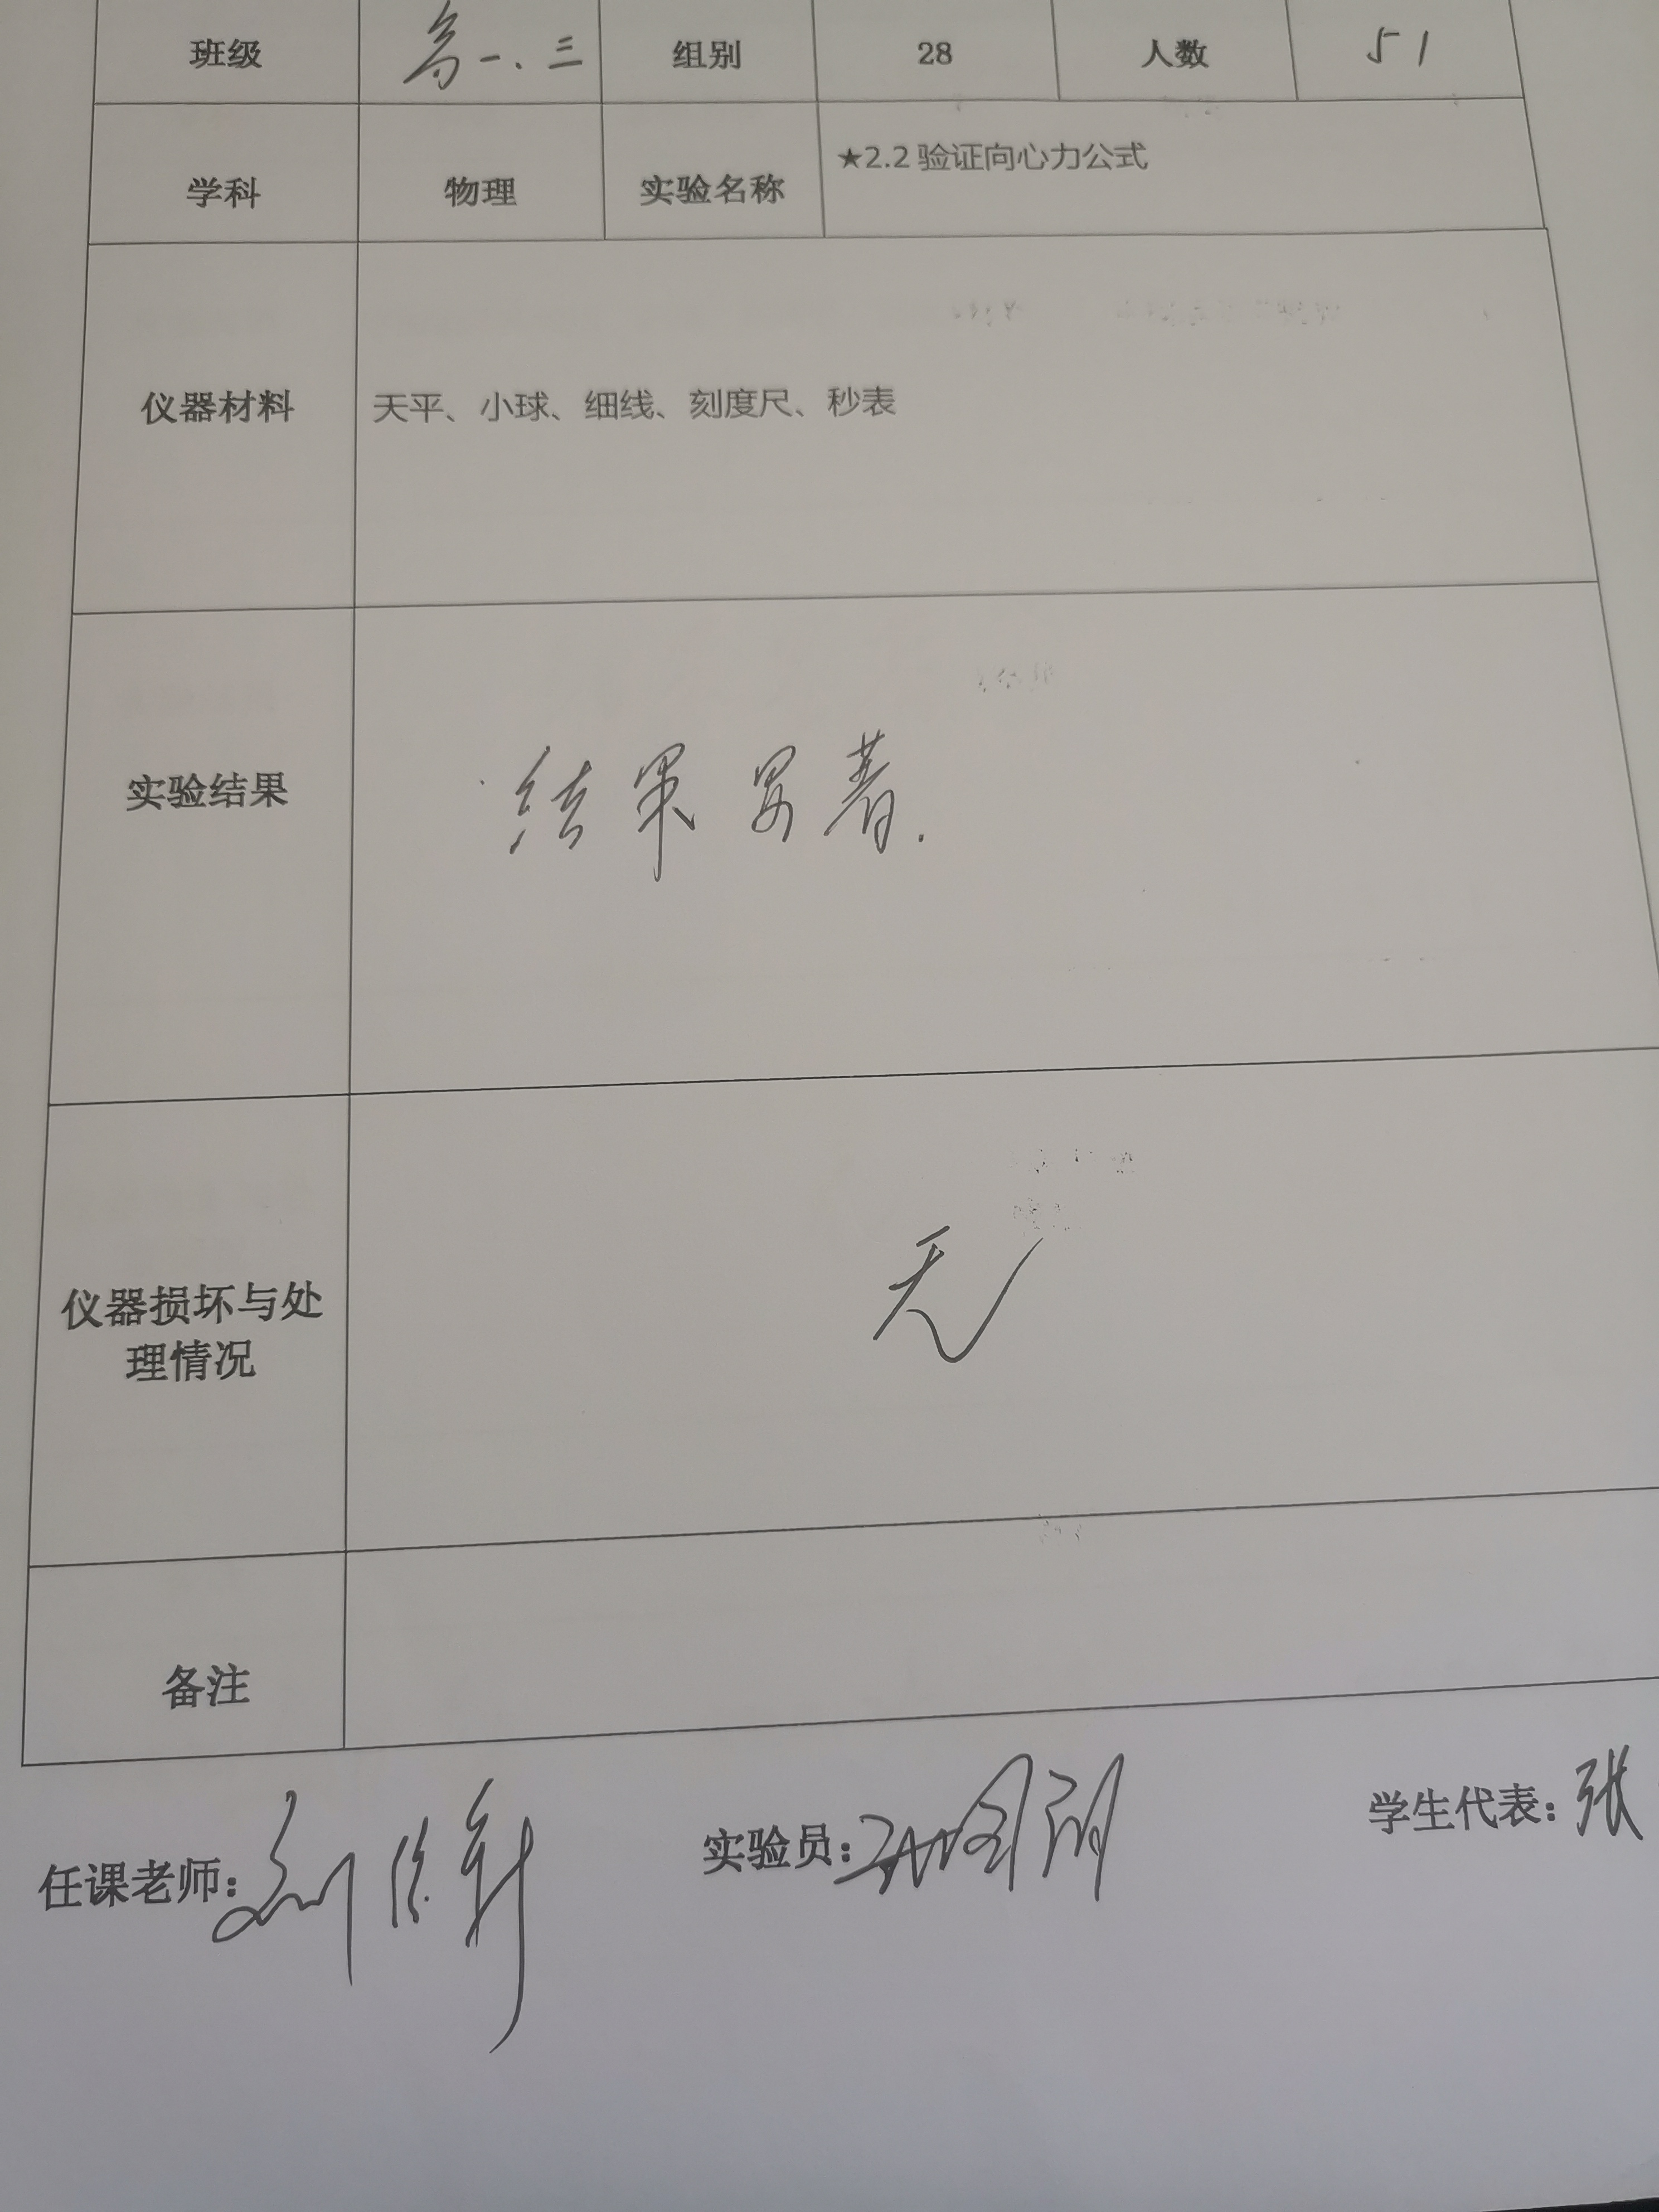 班级 高一、三 组别 28 人数 51
学科 物理 实验名称 ★2.2验证向心力公式
仪器材料 天平、小球、细线、刻度尺、秒表
实验结果 结果显著.
仪器损坏与处
理情况 无
备注
任课老师: 刘 实验员: 学生代表: 张